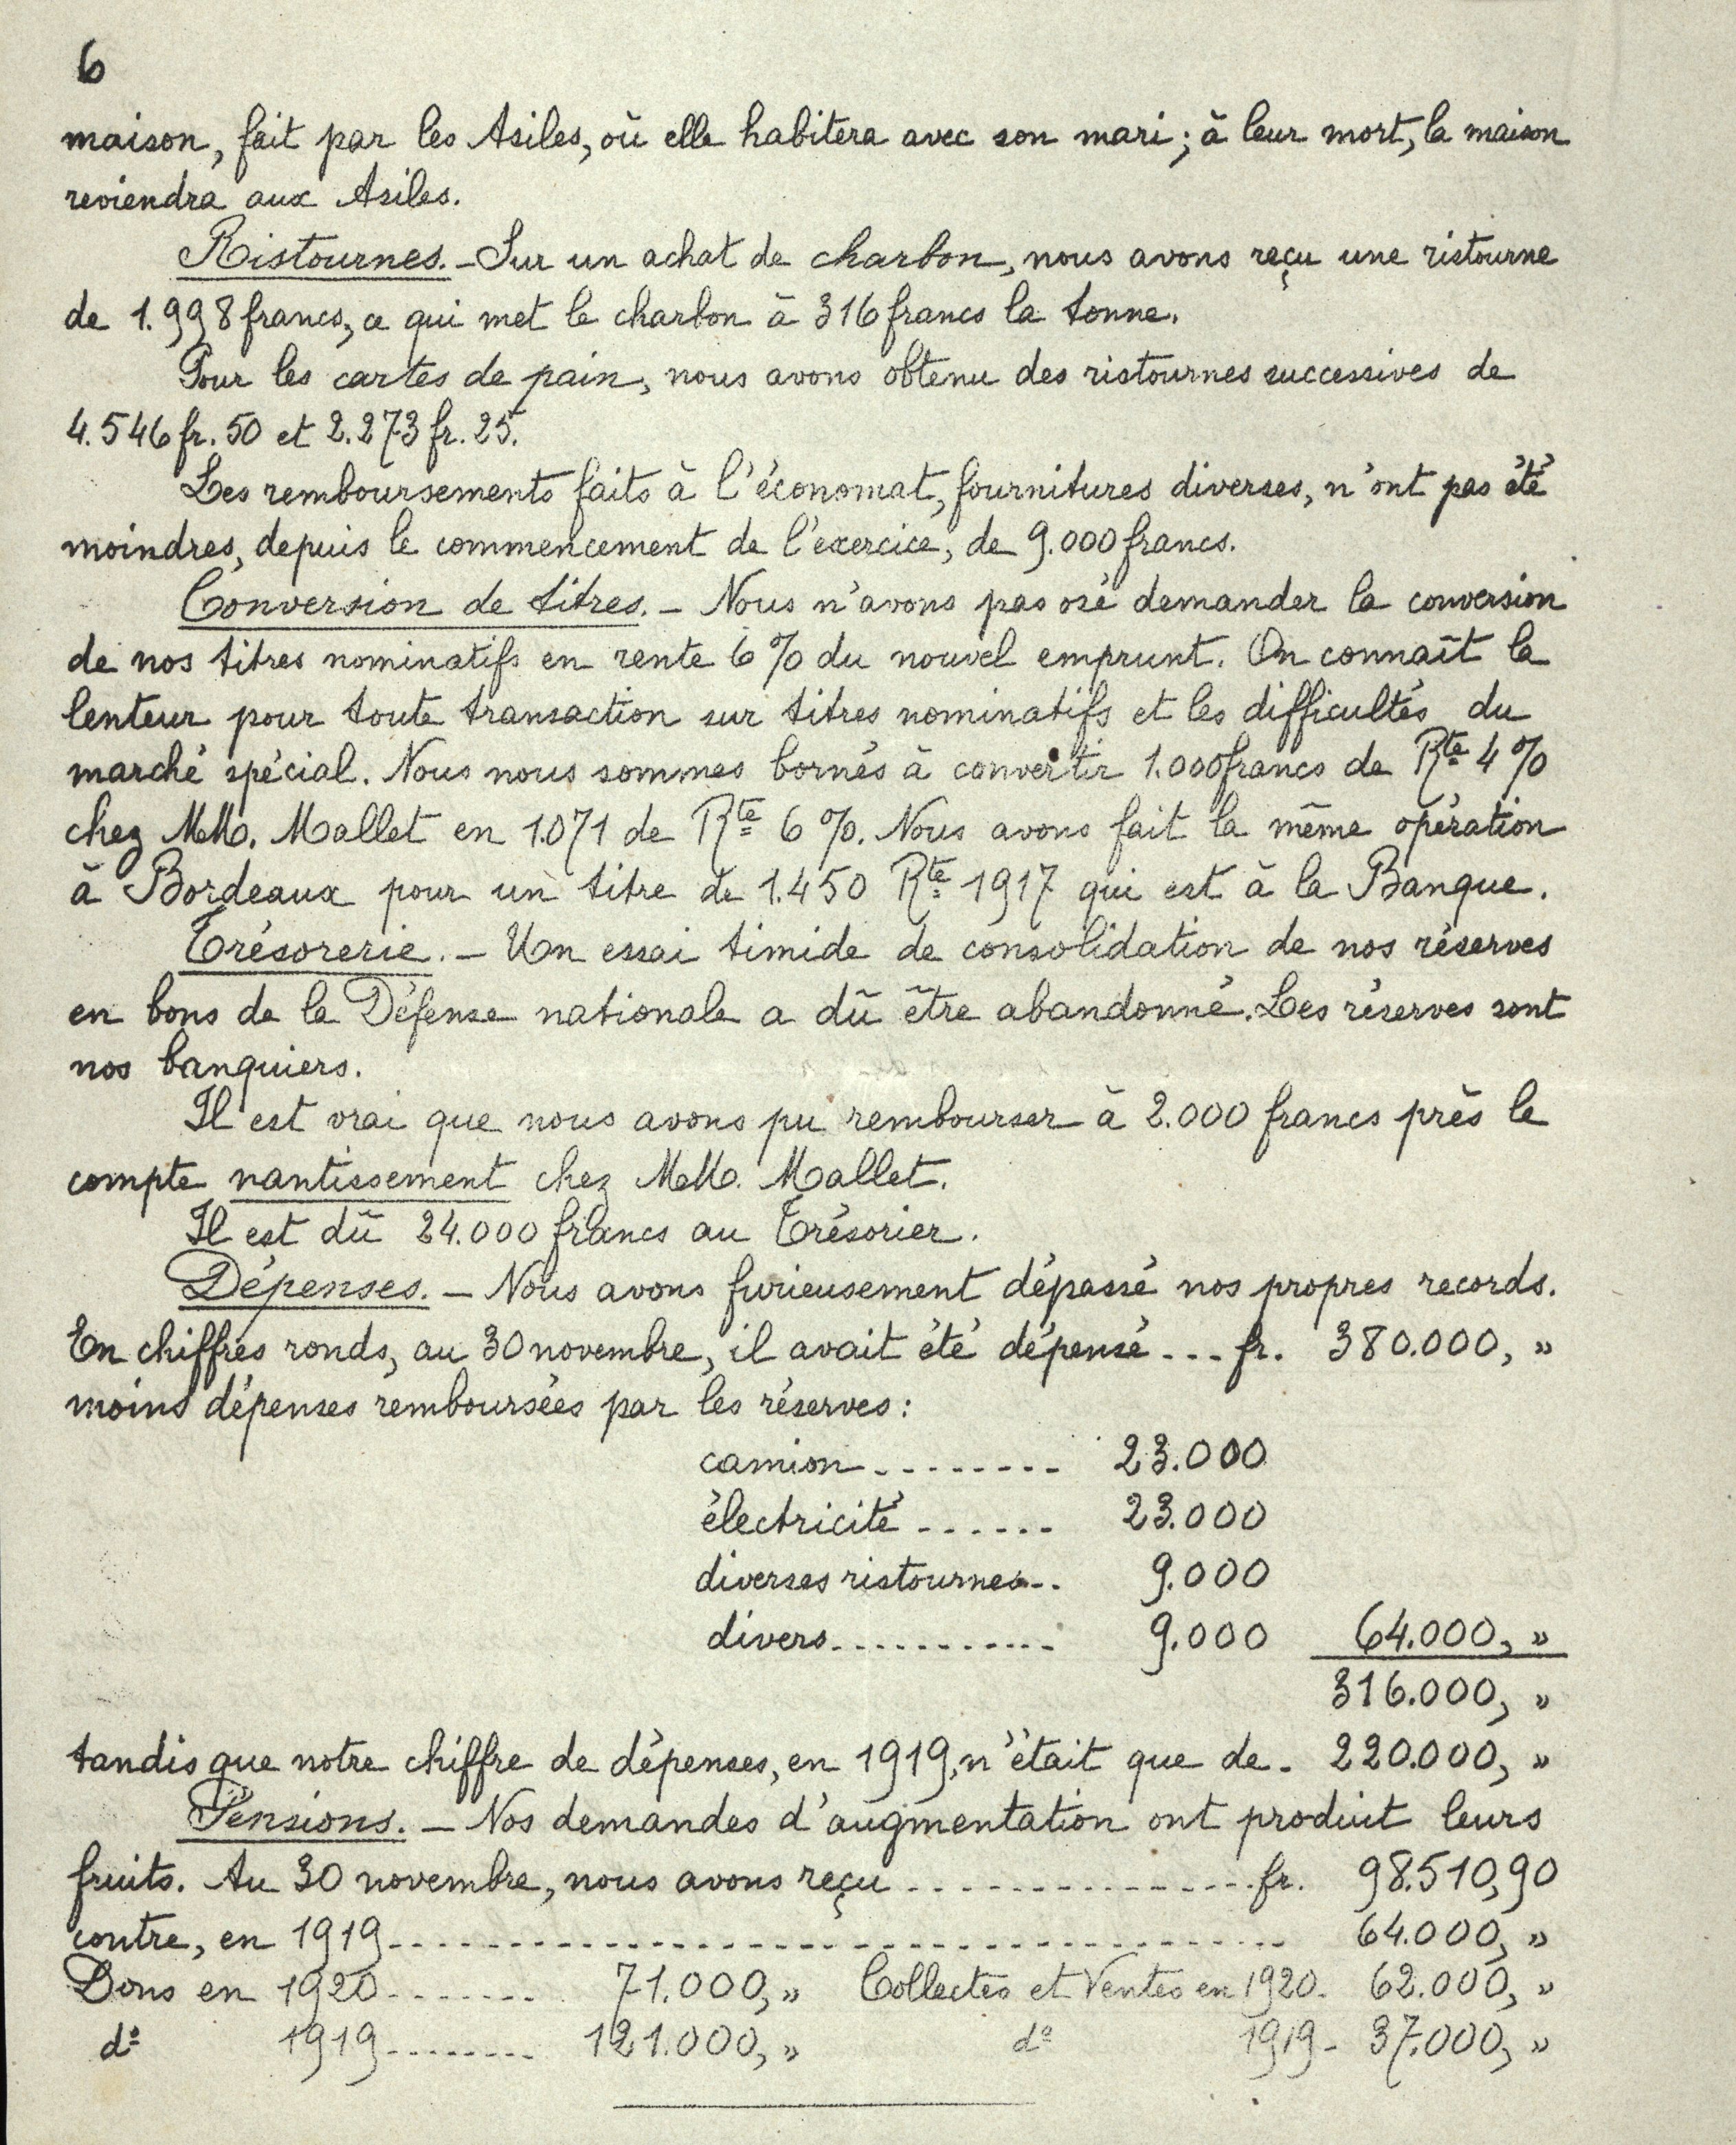 6
maison, fait par les Asiles, où elle habitera avec son mari ; à leur mort, la maison
reviendra aux Asiles.
Ristournes. - Sur un achat de charbon, nous avons reçu une ristourne
de 1.998 francs, ce qui met le charbon à 316 francs la tonne.
Pour les cartes de pain, nous avons obtenu des ristournes successives de
4.546 fr. 50 et 2.273 fr. 25.
Les remboursements faits à l'économat, fournitures diverses, n'ont pas été
moindres, depuis le commencement de l'exercice, de 9.000 francs.
Conversion de titres. - Nous n'avons pas osé demander la conversion
de nos titres nominatifs en rente 6 % du nouvel emprunt. On connaît la
lenteur pour toute transaction sur titres nominatifs et les difficultés du
marché spécial. Nous nous sommes bornés à convertir 1.000 francs de Rte 4 %
chez MM. Mallet en 1.071 de Rte 6 %. Nous avons fait la même opération
à Bordeaux pour un titre de 1.450 Rte 1917 qui est à la Banque.
Trésorerie. - Un essai timide de consolidation de nos réserves
en bons de la Défense nationale a dû être abandonné. Les réserves sont
nos banquiers.
Il est vrai que nous avons pu rembourser à 2.000 francs près le
compte nantissement chez MM. Mallet.
Il est dû 24.000 francs au Trésorier.
Dépenses. - Nous avons furieusement dépassé nos propres records.
En chiffres ronds, au 30 novembre, il avait été dépensé ... fr. 380.000, "
moins dépenses remboursées par les réserves :
camion ........ 23.000
électricité ...... 23.000
diverses ristournes .. 9.000
divers ............ 9.000 64.000, "
316.000, "
tandis que notre chiffre de dépenses, en 1919, n'était que de . 220.000, "
Pensions. - Nos demandes d'augmentation ont produit leurs
fruits. Au 30 novembre, nous avons reçu ................ fr. 98.510,90
contre, en 1919 ........................................ 64.000, "
Dons en 1920 ....... 71.000, " Collectes et Ventes en 1920 . 62.000, "
do 1919 ........ 121.000, " do 1919 - 37.000, "